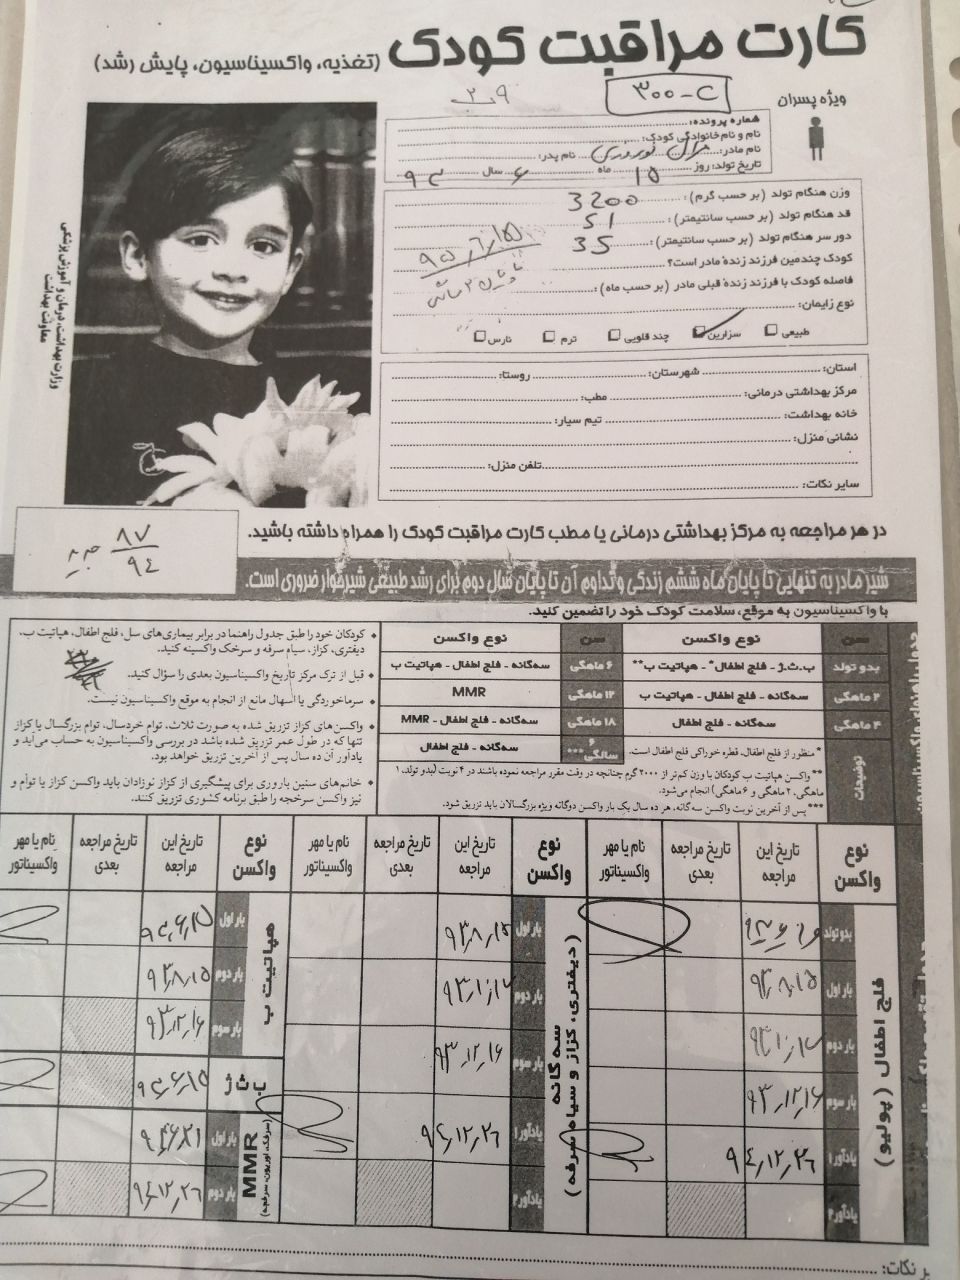 کارت مراقبت کودک (تغذیه، واکسیناسیون، پایش رشد)
ویژه پسران
۳۰۰-C
شماره پرونده:
نام و نام خانوادگی کودک:
نام مادر: نام پدر:
تاریخ تولد: روز ۱۵ ماه ۶ سال ۹۳
وزن هنگام تولد (بر حسب گرم): 3200
قد هنگام تولد (بر حسب سانتیمتر): 51
دور سر هنگام تولد (بر حسب سانتیمتر): 35
کودک چندمین فرزند زندهٔ مادر است؟
فاصله کودک با فرزند زندهٔ قبلی مادر (بر حسب ماه):
۹۵/۶/۱۵
نوع زایمان:
طبیعی سزارین چند قلویی ترم نارس
استان: شهرستان: روستا:
مرکز بهداشتی درمانی: مطب:
خانه بهداشت: تیم سیار:
نشانی منزل:
تلفن منزل:
سایر نکات:
وزارت بهداشت، درمان و آموزش پزشکی
معاونت بهداشت
در هر مراجعه به مرکز بهداشتی درمانی یا مطب کارت مراقبت کودک را همراه داشته باشید.
۸۷
۹۴
شیر مادر به تنهایی تا پایان ماه ششم زندگی و تداوم آن تا پایان سال دوم برای رشد طبیعی شیرخوار ضروری است.
با واکسیناسیون به موقع، سلامت کودک خود را تضمین کنید.
سن نوع واکسن سن نوع واکسن
بدو تولد ب.ث.ژ - فلج اطفال* - هپاتیت ب** ۶ ماهگی سه‌گانه - فلج اطفال - هپاتیت ب
۲ ماهگی سه‌گانه - فلج اطفال - هپاتیت ب ۱۲ ماهگی MMR
۴ ماهگی سه‌گانه - فلج اطفال ۱۸ ماهگی سه‌گانه - فلج اطفال - MMR
۶ سالگی *** سه‌گانه - فلج اطفال
توضیحات
* منظور از فلج اطفال، قطره خوراکی فلج اطفال است.
** واکسن هپاتیت ب کودکان با وزن کم‌تر از ۲۰۰۰ گرم چنانچه در وقت مقرر مراجعه نموده باشند در ۴ نوبت (بدو تولد، ۱
ماهگی، ۲ ماهگی و ۶ ماهگی) انجام می‌شود.
*** پس از آخرین نوبت واکسن سه‌گانه، هر ده سال یک بار واکسن دوگانه ویژه بزرگسالان باید تزریق شود.
• کودکان خود را طبق جدول راهنما در برابر بیماری‌های سل، فلج اطفال، هپاتیت ب،
دیفتری، کزاز، سیاه سرفه و سرخک واکسینه کنید.
• قبل از ترک مرکز تاریخ واکسیناسیون بعدی را سؤال کنید.
• سرماخوردگی یا اسهال مانع از انجام به موقع واکسیناسیون نیست.
• واکسن‌های کزاز تزریق شده به صورت ثلاث، توام خردسال، توام بزرگسال یا کزاز
تنها که در طول عمر تزریق شده باشد در بررسی واکسیناسیون به حساب می‌آید و
یادآور آن ده سال پس از آخرین تزریق خواهد بود.
• خانم‌های سنین باروری برای پیشگیری از کزاز نوزادان باید واکسن کزاز یا توأم و
نیز واکسن سرخجه را طبق برنامه کشوری تزریق کنند.
نوع واکسن تاریخ این مراجعه تاریخ مراجعه بعدی نام یا مهر واکسیناتور
فلج اطفال (پولیو)
بدو تولد
بار اول ۹۳/۸/۱۵
بار دوم
بار سوم ۹۳/۱۲/۱۶
یادآور ۱ ۹۴/۱۲/۲۶
یادآور ۲
نوع واکسن تاریخ این مراجعه تاریخ مراجعه بعدی نام یا مهر واکسیناتور
سه گانه (دیفتری، کزاز و سیاه سرفه)
بار اول ۹۳/۸/۱۵
بار دوم
بار سوم ۹۳/۱۲/۱۶
یادآور ۱ ۹۴/۱۲/۲۶
یادآور ۲
نوع واکسن تاریخ این مراجعه تاریخ مراجعه بعدی نام یا مهر واکسیناتور
هپاتیت ب
بار اول ۹۳/۶/۱۵
بار دوم ۹۳/۸/۱۵
بار سوم ۹۳/۱۲/۱۶
ب ث ژ ۹۳/۶/۱۵
MMR (سرخک، اوریون، سرخجه)
بار اول
بار دوم ۹۴/۱۲/۲۶
ر نکات: